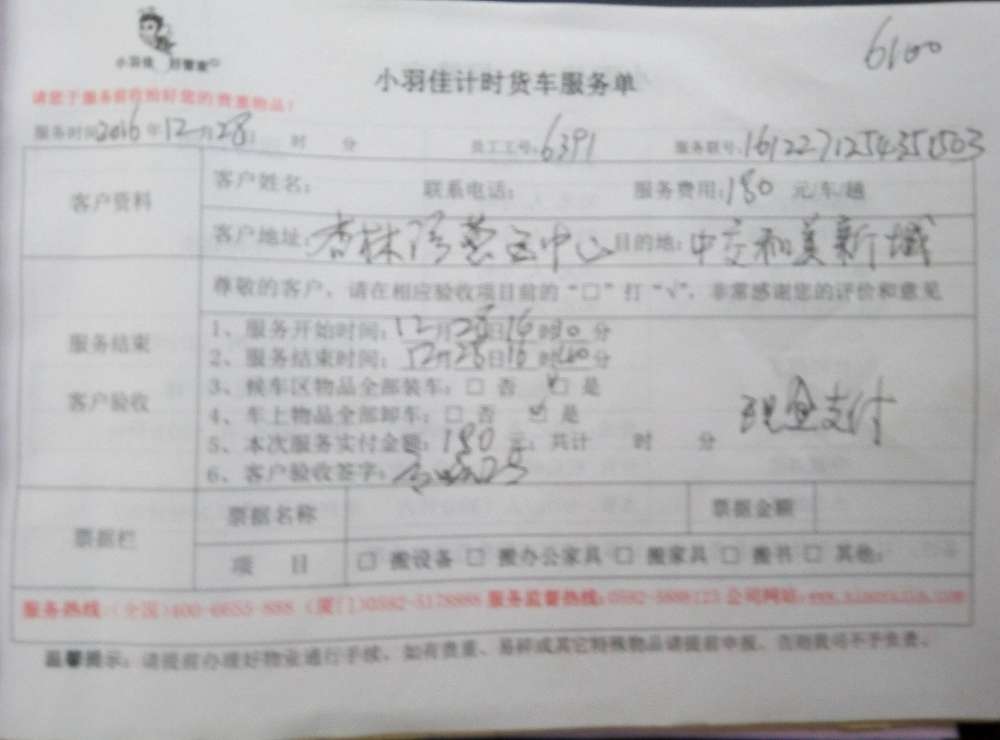 6100
小羽佳 好管家
小羽佳计时货车服务单
请您于服务前收拾好您的贵重物品！
服务时间2016年12月28日 时 分 员工工号：6391 服务联号：
客户资料 客户姓名： 联系电话： 服务费用：180 元/车/趟
客户地址：杏林 中心 目的地：中交和美新城
尊敬的客户，请在相应验收项目前的“□”打“√”，非常感谢您的评价和意见
服务结束
客户验收
1、服务开始时间：12月28日16时10分
2、服务结束时间：12月28日16时分
3、候车区物品全部装车：□ 否 ☑ 是
4、车上物品全部卸车：□ 否 ☑ 是
5、本次服务实付金额：180元，共计 时 分
现金支付
6、客户验收签字：
票据栏 票据名称 票据金额
项 目 □ 搬设备 □ 搬办公家具 □ 搬家具 □ 搬书 □ 其他：
服务热线：(全国)400-6655-888 (厦门)0592-5178888 服务监督热线： 公司网站：
温馨提示：请提前办理好物业通行手续，如有贵重、易碎或其它特殊物品请提前申报，否则我司不予负责。